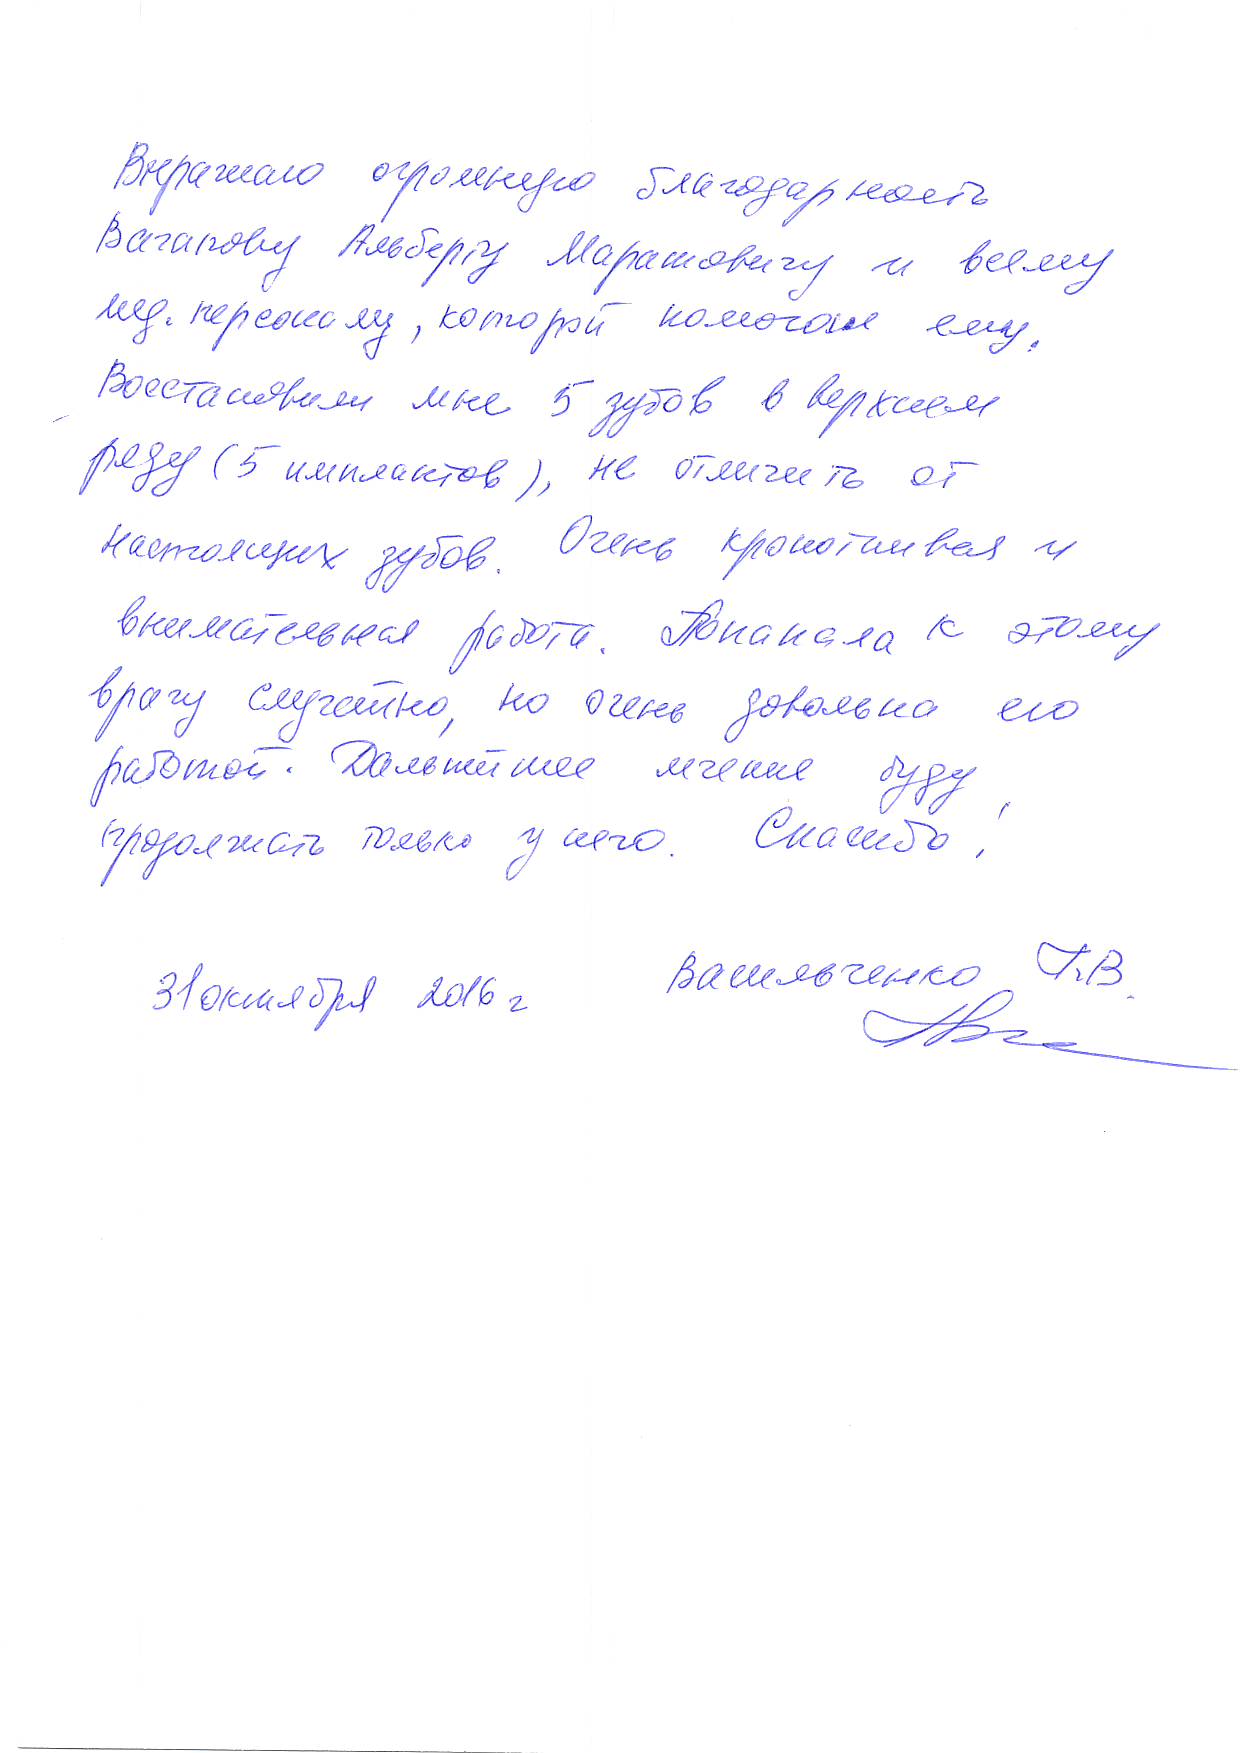 Выражаю огромную благодарность
Вагапову Альберту Маратовичу и всему
мед. персоналу, который помогал ему.
Восстановили мне 5 зубов в верхнем
ряду (5 имплактов), не отличить от
настоящих зубов. Очень кропотливая и
внимательная работа. Попапала к этому
врачу случайно, но очень довольна его
работой. Дальнейшее лечение буду
продолжать только у него. Спасибо!
31 октября 2016 г Васильченко Г.В.